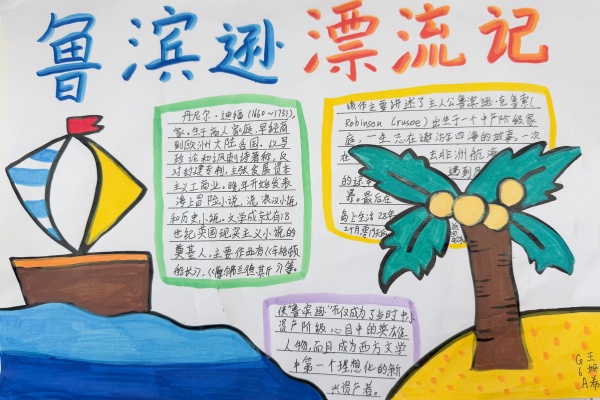 鲁滨逊漂流记
丹尼尔·迪福(1660~1731),
家。生于商人家庭,早经商
到欧洲大陆各国,以写
政论和讽刺诗著称,反
对封建专制,主张发展资本
主义工商业。晚年开始发表
海上冒险小说,流浪汉小说
和历史小说。文学成就有18
世纪英国现实主义小说的
奠基人,主要作品有《辛格顿
船长》,《摩尔弗兰德斯》等。
该作主要讲述了主人公鲁滨逊·克鲁索(
Robinson Crusoe)出生于一个中产阶级家
庭,一生志在遨游四海的故事。一次
在
去非洲航海
的途中
遇到风
暴。最后在
岛上生活28年
2个月零19天后
使“鲁滨逊”不仅成为了当时中小
资产阶级心目中的英雄
人物,而且成为西方文学
中第一个理想化的新
兴资产者。
王姗希
G6A